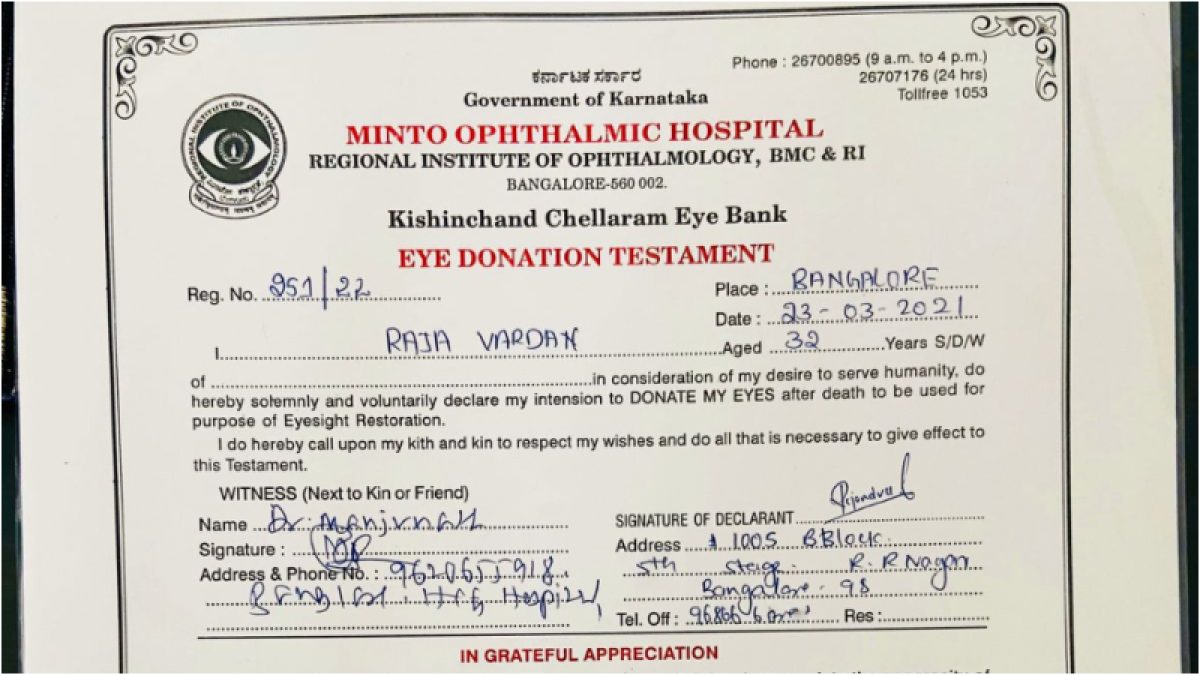 Phone : 26700895 (9 a.m. to 4 p.m.)
26707176 (24 hrs)
Tollfree 1053
ಕರ್ನಾಟಕ ಸರ್ಕಾರ
Government of Karnataka
MINTO OPHTHALMIC HOSPITAL
REGIONAL INSTITUTE OF OPHTHALMOLOGY, BMC & RI
BANGALORE-560 002.
REGIONAL INSTITUTE OF OPHTHALMOLOGY
Kishinchand Chellaram Eye Bank
EYE DONATION TESTAMENT
Reg. No. 251/22
Place : BANGALORE
Date : 23-03-2021
I RAJA VARDAN Aged 32 Years S/D/W
of in consideration of my desire to serve humanity, do
hereby solemnly and voluntarily declare my intension to DONATE MY EYES after death to be used for
purpose of Eyesight Restoration.
I do hereby call upon my kith and kin to respect my wishes and do all that is necessary to give effect to
this Testament.
WITNESS (Next to Kin or Friend)
Name Dr. Manjunath
Signature :
Address & Phone No. : 9620655918
HCG Hospital,
SIGNATURE OF DECLARANT
Address 1005 B Block
5th stage R. R Nagar
Bangalore - 98
Tel. Off : Res :
IN GRATEFUL APPRECIATION